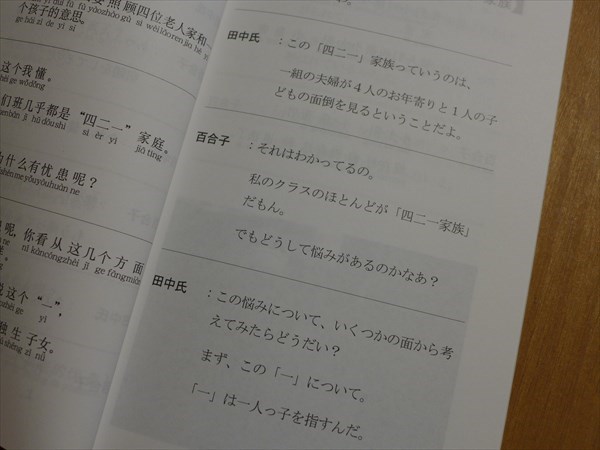 照顾四位老人家和一
个孩子的意思。
ge hái zi de yì si
这个我懂。
们班几乎都是“四二一”家庭。
sì èr yī jiā tíng
什么有忧患呢？
呢，你看从这几个方面
这个“一”，
独生子女。
田中氏 ：この「四二一」家族っていうのは、
一組の夫婦が４人のお年寄りと１人の子
どもの面倒を見るということだよ。
百合子 ：それはわかってるの。
私のクラスのほとんどが「四二一家族」
だもん。
でもどうして悩みがあるのかなあ？
田中氏 ：この悩みについて、いくつかの面から考
えてみたらどうだい？
まず、この「一」について。
「一」は一人っ子を指すんだ。